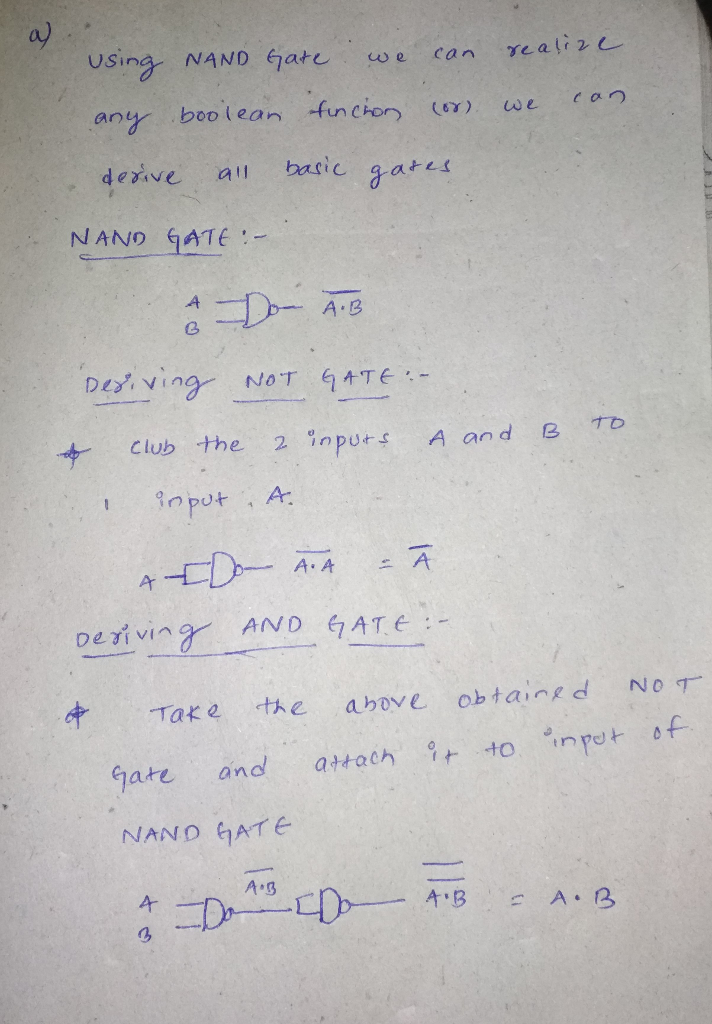 a)
Using NAND Gate we can realize
any boolean function (or) we can
derive all basic gates
NAND GATE :-
A
B
A̅·̅B̅
Deriving NOT GATE :-
* Club the 2 inputs A and B to
1 input A.
A A̅·̅A̅ = A̅
Deriving AND GATE :-
* Take the above obtained NOT
Gate and attach it to input of
NAND GATE
A̅·̅B̅
A
B
A̿·̿B̿ = A·B